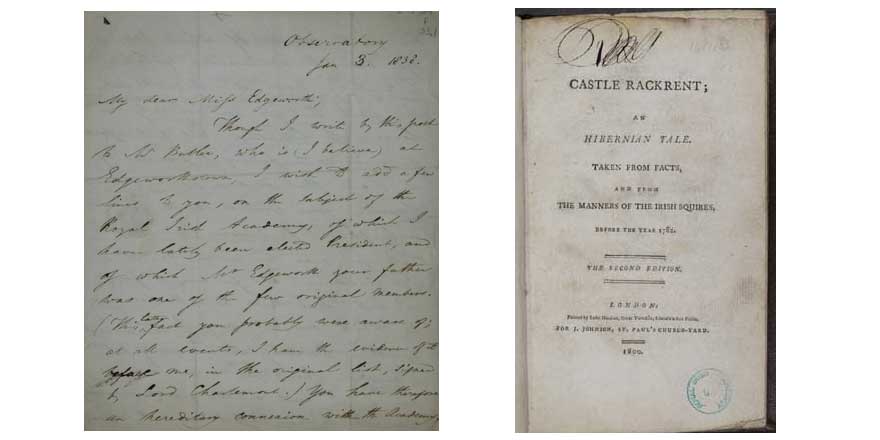 Observatory
Jan 3. 1838.
My dear Miss Edgeworth,
Though I write by this post
to Mr Butler, who is (I believe) at
Edgeworthstown, I wish to add a few
lines to you, on the subject of the
Royal Irish Academy, of which I
have lately been elected President, and
of which Mr Edgeworth your father
was one of the few original members.
(This latter fact you probably were aware of;
at all events, I have the evidence of it
before me, in the original list, signed
by Lord Charlemont.) You have therefore
an hereditary connexion with the Academy,
CASTLE RACKRENT;
AN
HIBERNIAN TALE.
TAKEN FROM FACTS,
AND FROM
THE MANNERS OF THE IRISH SQUIRES,
BEFORE THE YEAR 1782.
THE SECOND EDITION.
LONDON:
Printed by Luke Hansard, Great Turnstile, Lincoln's-Inn Fields,
FOR J. JOHNSON, ST. PAUL'S CHURCH-YARD.
1800.
ROYAL IRISH ACADEMY